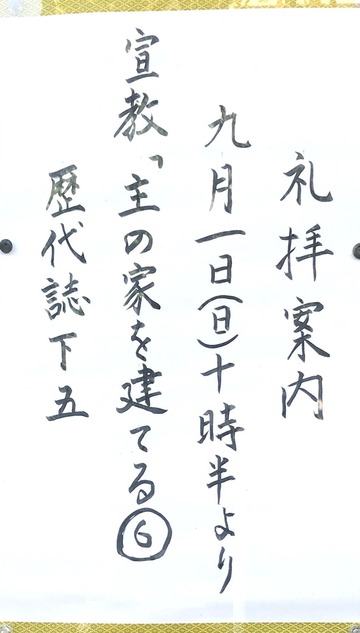 礼拝案内
九月一日(日)十時半より
宣教「主の家を建てる⑥
歴代誌下五